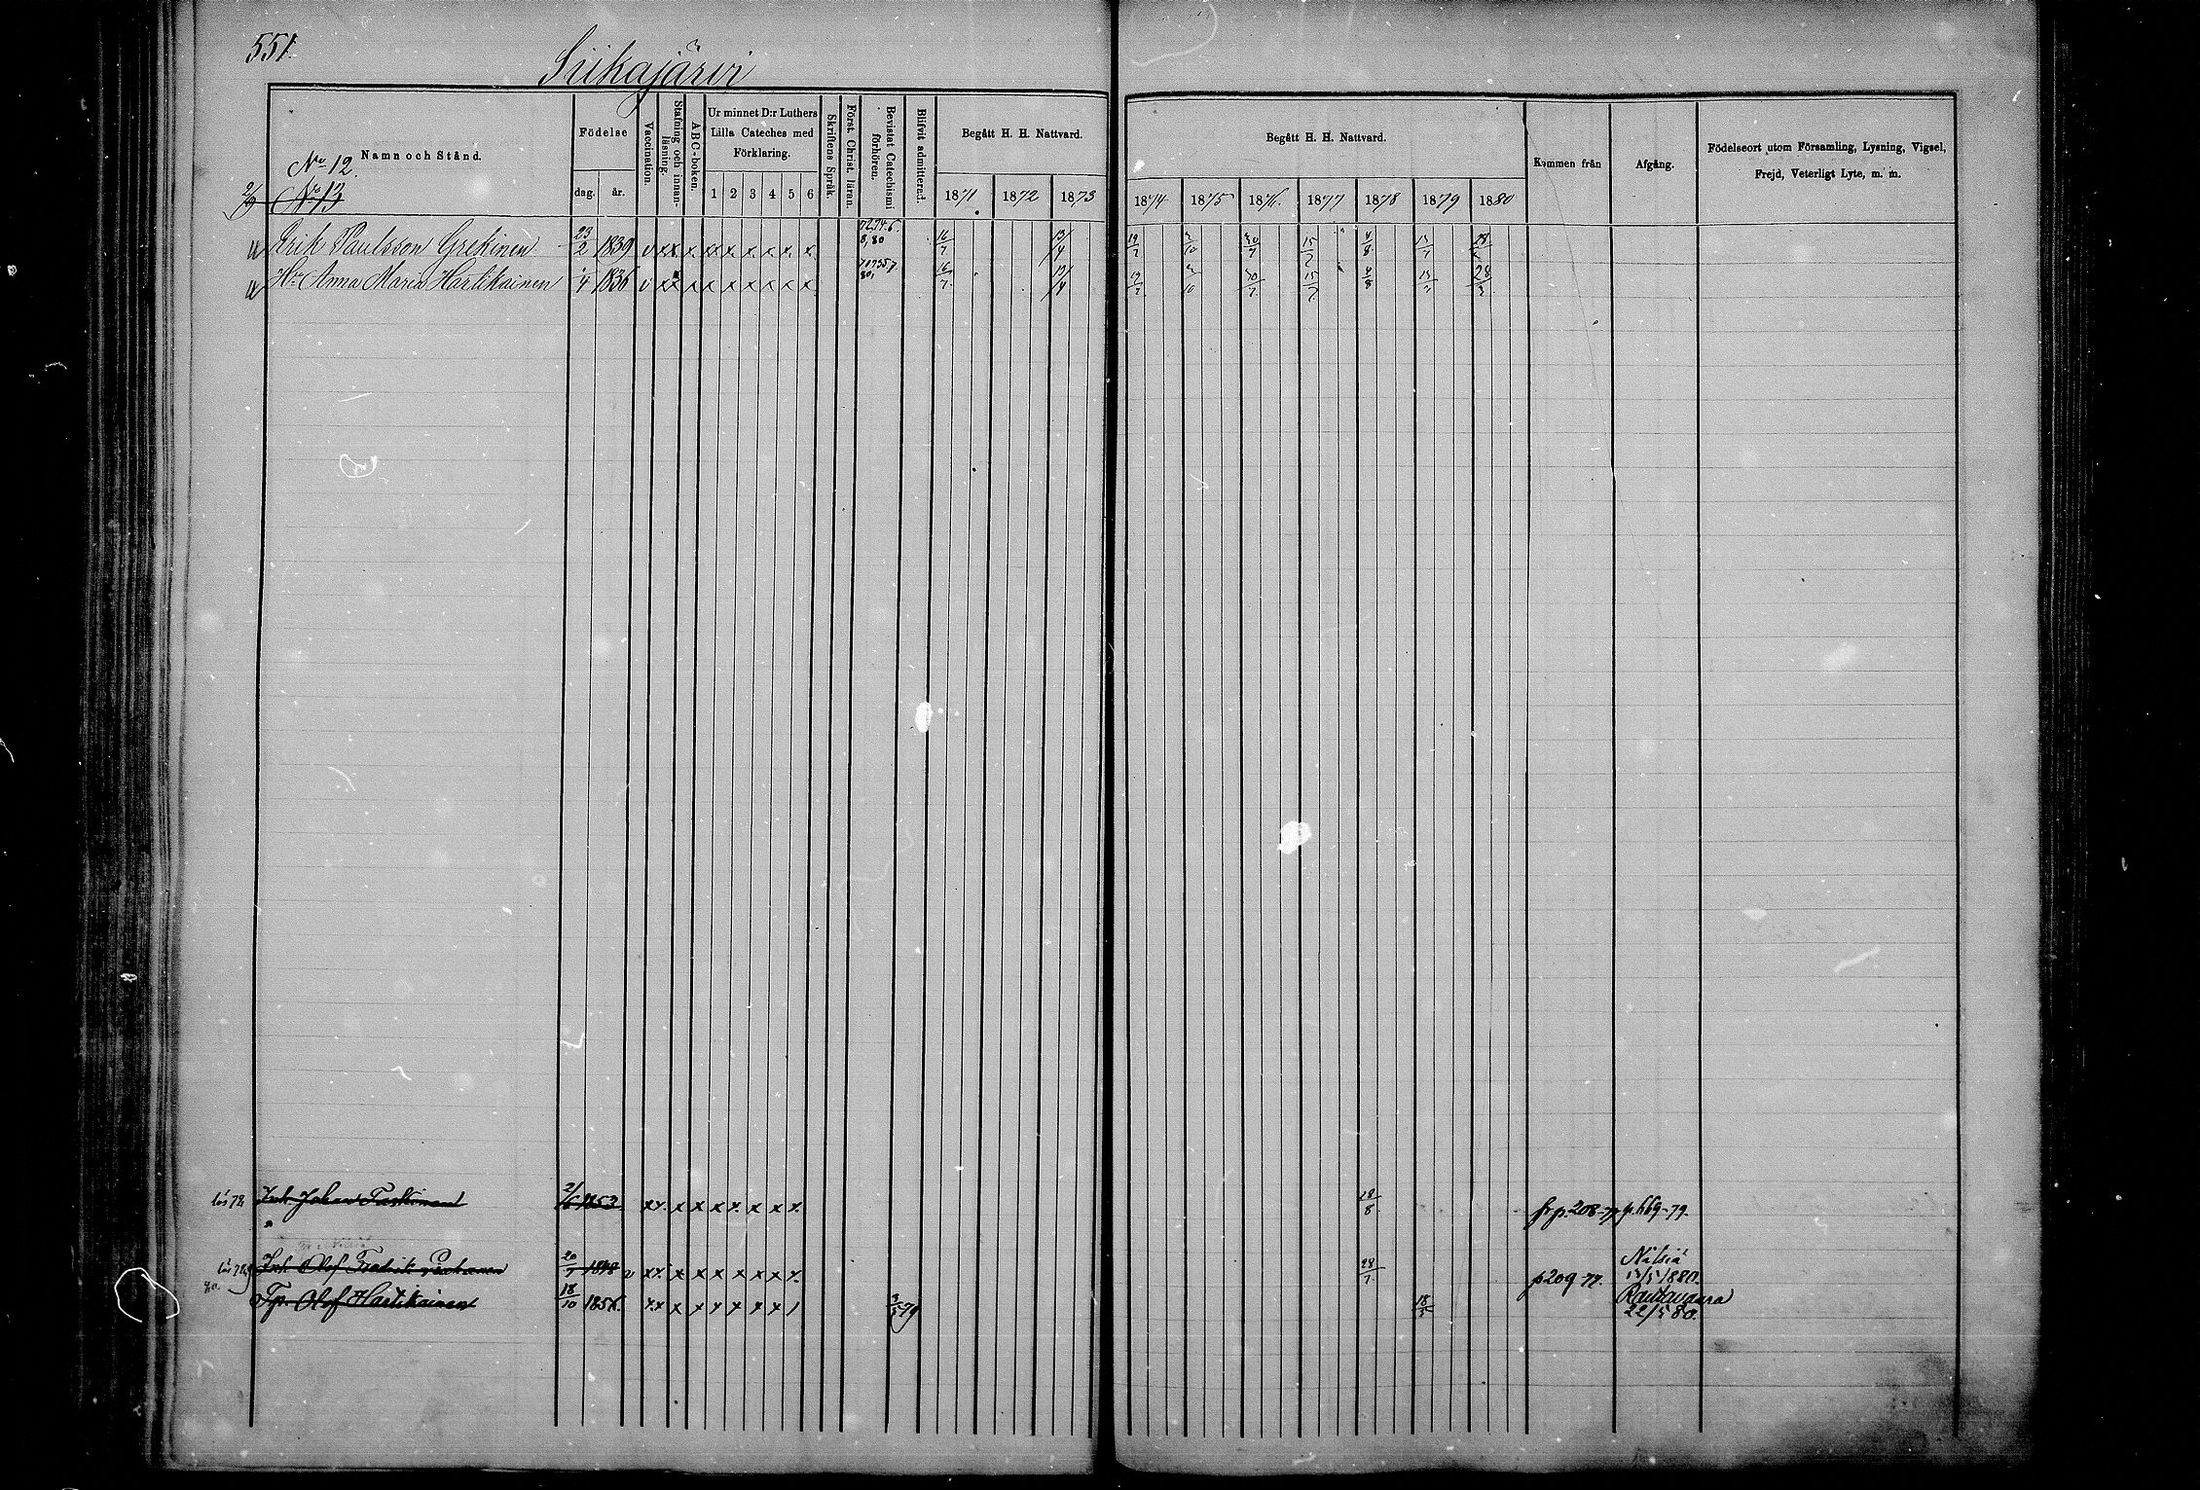 551.
Siikajärvi
Namn och Stånd.
No 12.
No 13
Födelse
dag. år.
Vaccination.
Stafning och innanläsning.
ABC-boken.
Ur minnet D:r Luthers
Lilla Cateches med
Förklaring.
1 2 3 4 5 6
Skriftens Språk.
Först. Christ. läran.
Bevistat Catechismi förhören.
Blifvit admitterad.
Begått H. H. Nattvard.
1871 1872 1873
Begått H. H. Nattvard.
1874 1875 1876. 1877 1878 1879 1880
Kommen från
Afgång.
Födelseort utom Församling, Lysning, Vigsel,
Frejd, Veterligt Lyte, m. m.
Erik Paulsson Grekinen 23/2 1839 v x x x x x x x x x 16/7 13/4 19/7 3/10 30/7 15/7 4/8 28
Hu Anna Maria Hartikainen 4 1836 v x x x x x x x x x 16/7 13/4 19/7 3/10 30/7 15/7 4/8 28
lös 78 Inh Johan 2/6 1853 x x x x x x x x x 28/8 fr p. 208-77 p. 669-79.
Inh. Olof Fredrik 20/7 1848 v x x x x x x x x x 28/7 p 209-77. Nilsiä
/5 1880.
Tp. Olof Hartikainen 18/10 1856. x x x x x x x x 79 18 Rautavaara
22/5 80.